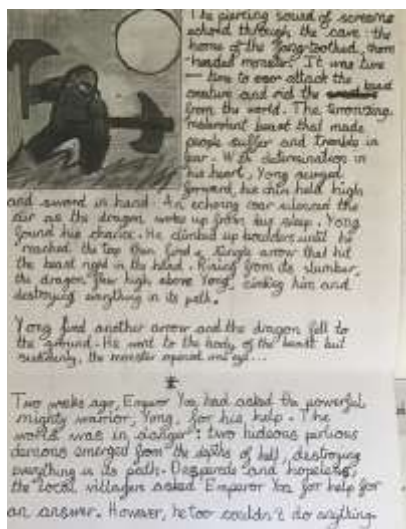 The piercing sound of screams
echoed through the cave: the
home of the fang-toothed, horn
headed monster. It was time
— time to attack the beast
creature and rid the
from the world. The terrorizing,
malevolent beast that made
people suffer and tremble in
fear. With determination in
his heart, Yong surged
forward, his chin held high
and sword in hand. An echoing roar silenced the
air as the dragon woke up from his sleep. Yong
found his chance. He climbed up boulders until he
reached the top then fired a single arrow that hit
the beast right in the head. Rising from its slumber,
the dragon flew high above Yong, circling him and
destroying everything in its path.
Yong fired another arrow and the dragon fell to
the ground. He went to the body of the beast but
suddenly, the monster opened one eye...
Two weeks ago, Emperor Yao had asked the powerful,
mighty warrior, Yong, for his help. The
world was in danger: two hideous
demons emerged from the depths of hell, destroying
everything in its path. Desperate and hopeless,
the local villagers asked Emperor Yao for help for
an answer. However, he too couldn't do anything.